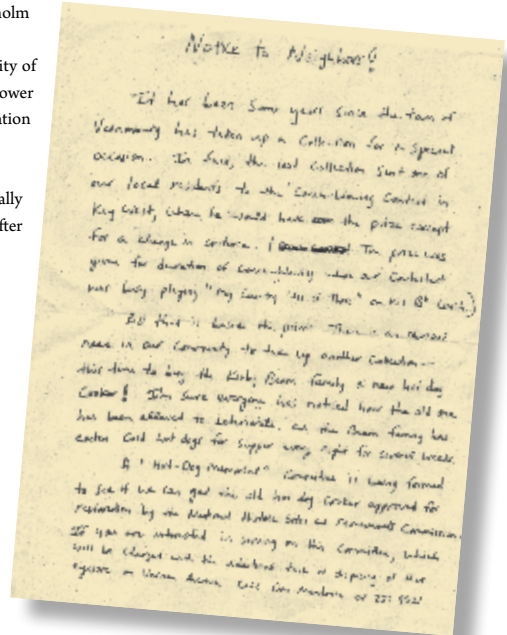 holm
ity of
ower
ation
ally
fter
Notice to Neighbors!
It has been some years since the town of
has taken up a collection for a special
occasion. In fact, the last collection sent one of
our local residents to the Conch-blowing Contest in
Key West, where he would have the prize except
for a change in criteria. ( The prize was
given for duration of conch-blowing when our contestant
was busy playing "My Country 'tis of Thee" on his Bb Conch.)
But that is beside the point. There is an
need in our community to take up another collection —
this time to buy the Kirby Beam family a new hot dog
Cooker! I'm sure everyone has noticed how the old one
has been allowed to deteriorate, and the Beam family has
eaten cold hot dogs for supper every night for several weeks.
A "Hot-Dog Memorial" Committee is being formed
to see if we can get the old hot dog cooker approved for
restoration by the National Historic Sites and Monuments Commission.
If you are interested in serving on this committee, which
will be charged with the additional task of disposing of this
eyesore on Avenue, call